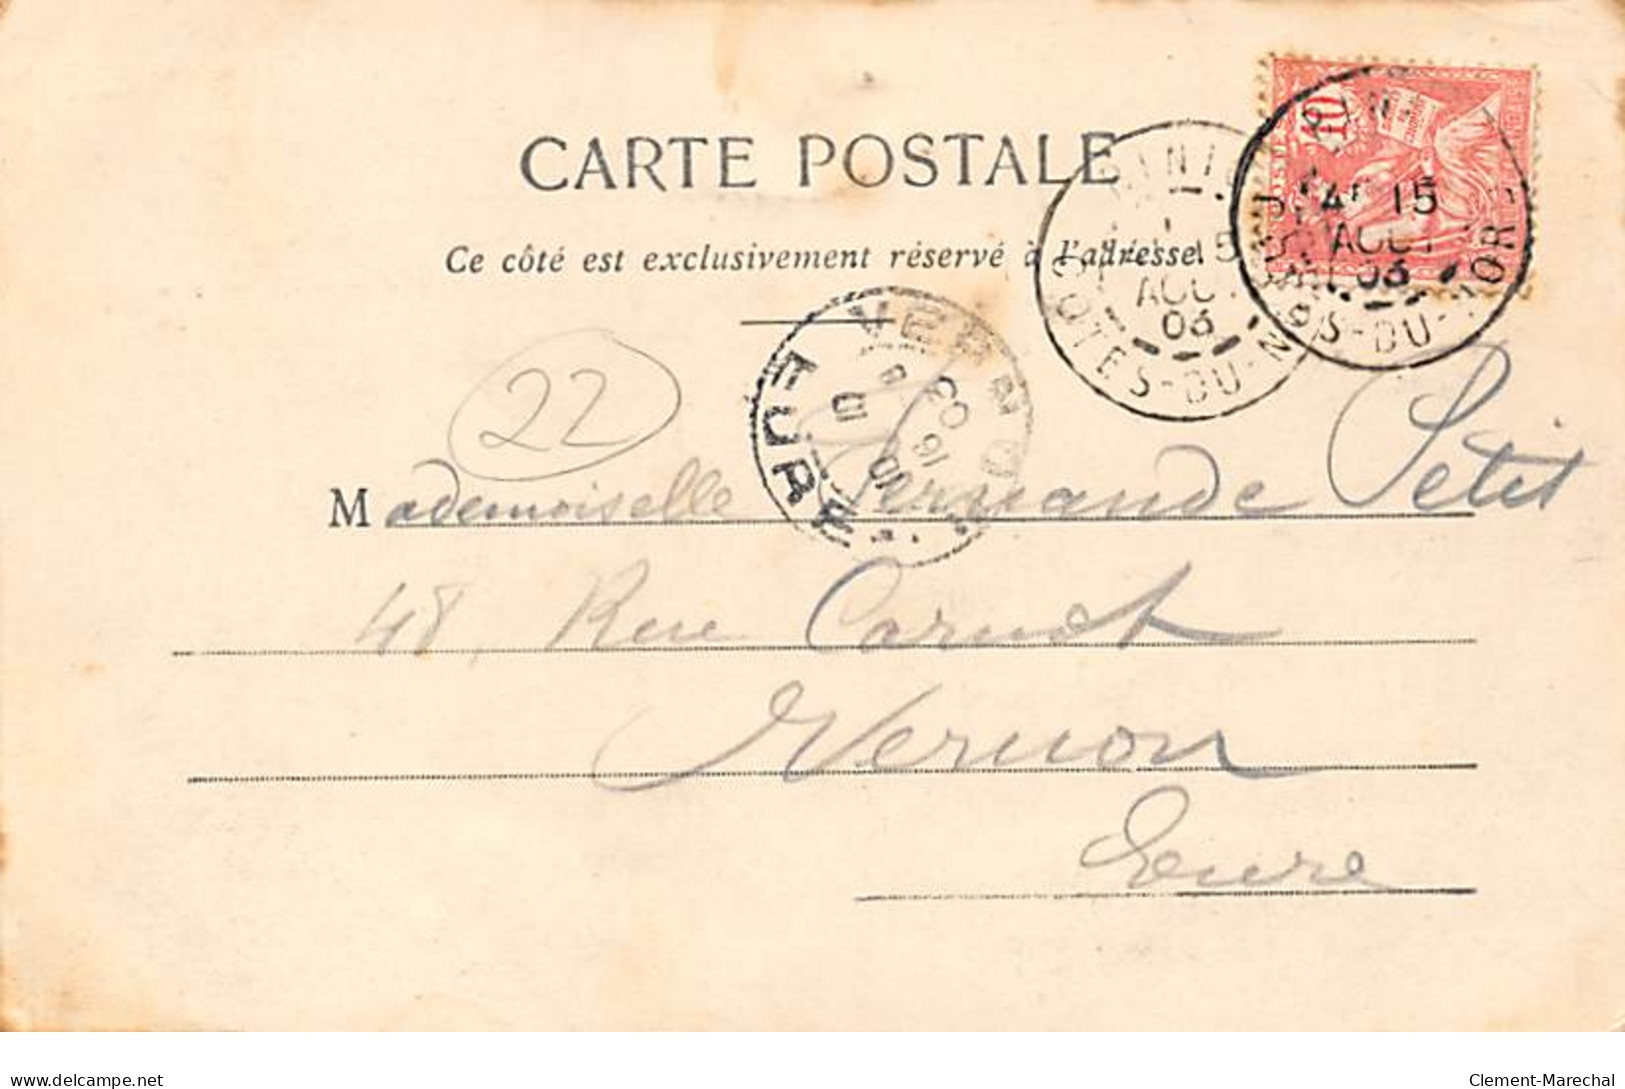 CARTE POSTALE
Ce côté est exclusivement réservé à l'adresse
10
15
AOUT
03
CÔTES-DU-NORD
15
AOUT
03
CÔTES-DU-NORD
VERNON
16
03
EURE
22
Mademoiselle Fernande Petit
48, Rue Carnot
Vernon
Eure
delcampe.net
Clement-Marechal